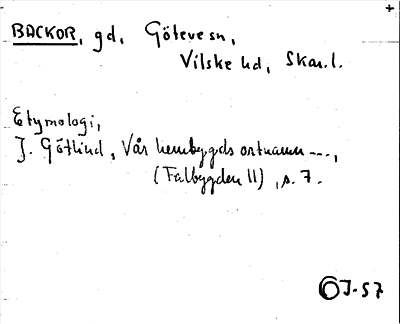 BACKOR, gd, Götevesn,
Vilske hd, Skar.l.
Etymologi,
J. Götlind, Vår hembygds ortnamn ---,
(Falbygden II), s. 7.
OJ-57